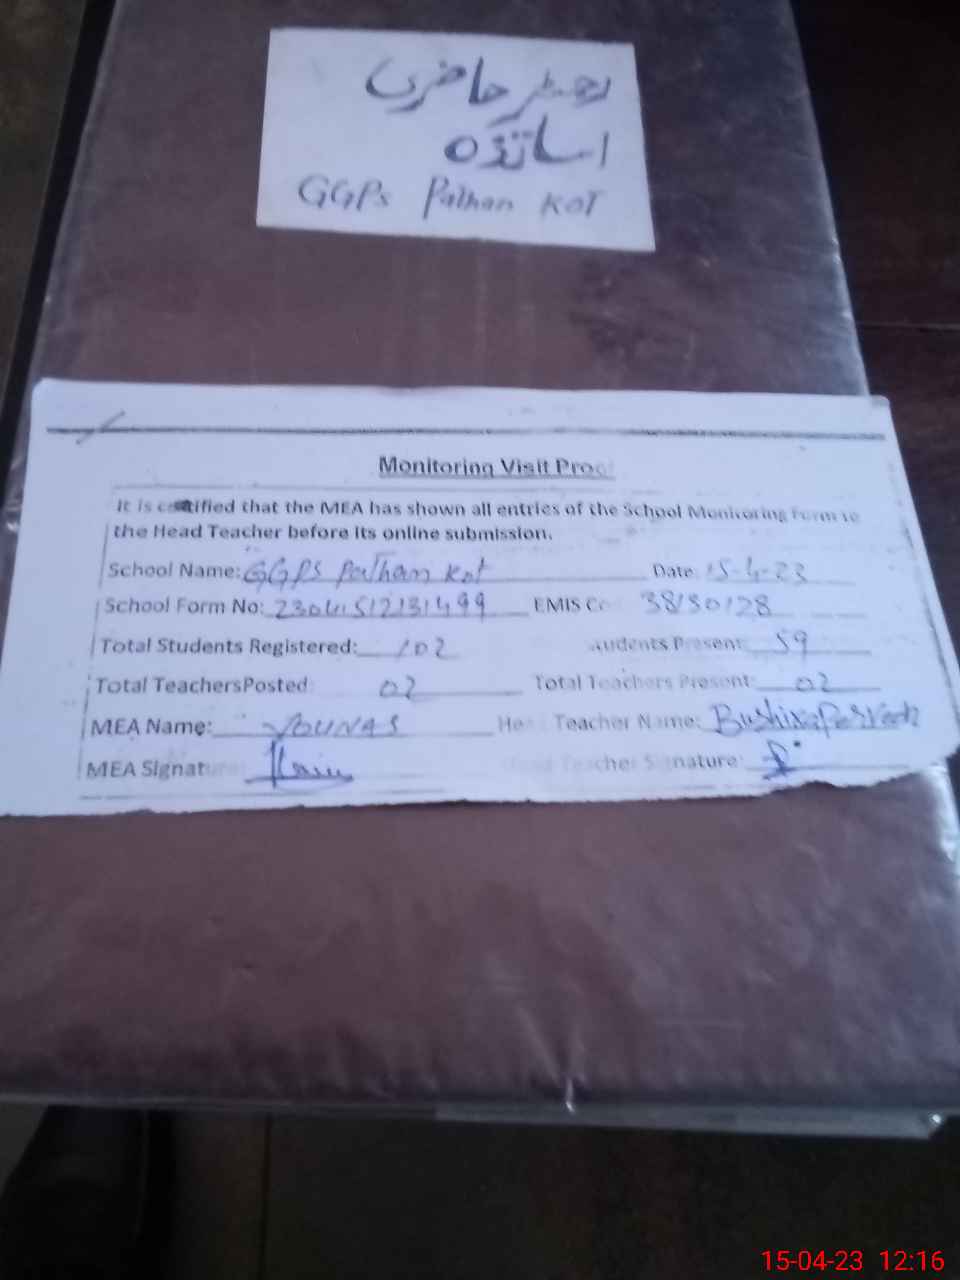 رجسٹر حاضری
اساتذہ
GGPS Pathan KOT
Monitoring Visit Proof
It is certified that the MEA has shown all entries of the School Monitoring Form to
the Head Teacher before its online submission.
School Name: GGPS Pathan Kot Date: 15-4-23
School Form No: 23041512131499 EMIS Co 38130128
Total Students Registered: 102 Students Present: 59
Total TeachersPosted 02 Total Teachers Present: 02
MEA Name: YOUNAS Head Teacher Name: Bushra Parveen
MEA Signature Head Teacher Signature:
15-04-23 12:16